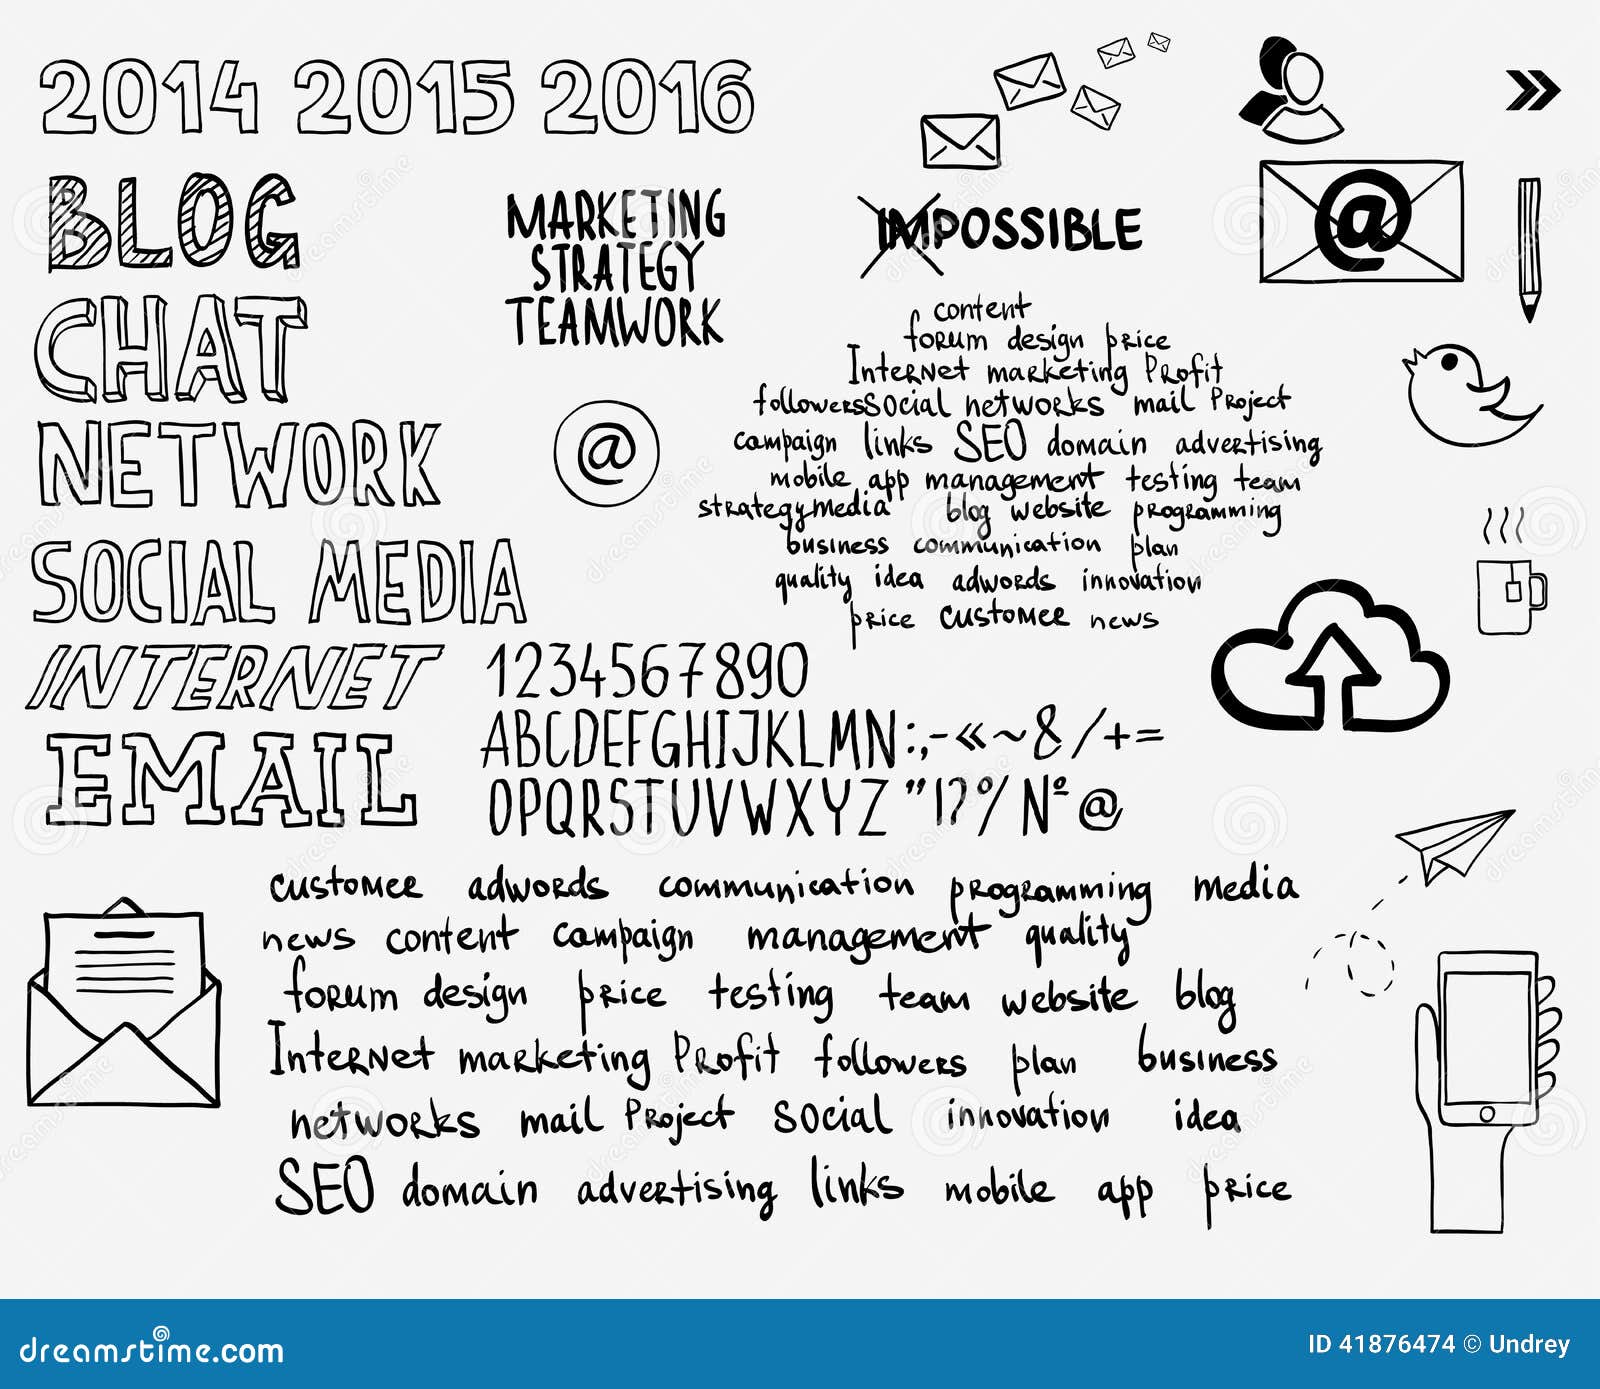 2014 2015 2016
BLOG
CHAT
NETWORK
SOCIAL MEDIA
INTERNET
EMAIL
MARKETING
STRATEGY
TEAMWORK
@
IMPOSSIBLE
@
content
forum design price
Internet marketing Profit
followers social networks mail Project
campaign links SEO domain advertising
mobile app management testing team
strategy media blog website programming
business communication plan
quality idea adwords innovation
price customer news
1234567890
ABCDEFGHIJKLMN:;-«~&/+=
OPQRSTUVWXYZ"!?%№@
customer adwords communication programming media
news content campaign management quality
forum design price testing team website blog
Internet marketing Profit followers plan business
networks mail Project social innovation idea
SEO domain advertising links mobile app price
dreamstime.com
ID 41876474 © Undrey